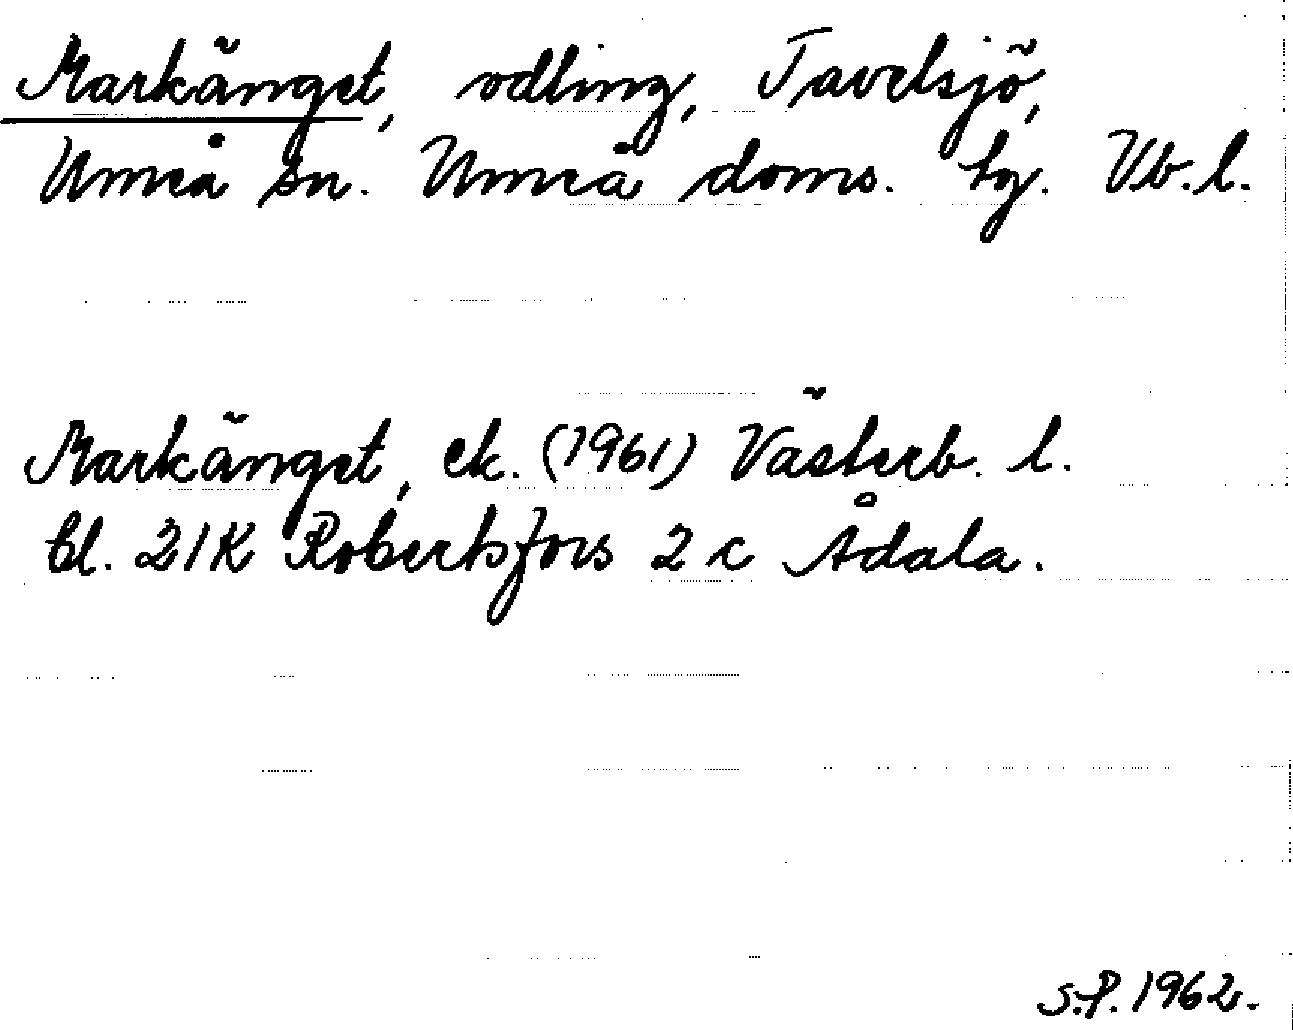 Markänget, odling, Tavelsjö,
Umeå sn. Umeå doms. tg. Vb. l.
Markänget, ek. (1961) Västerb. l.
bl. 21K Robertsfors 2 c Ådala.
S.P. 1962.